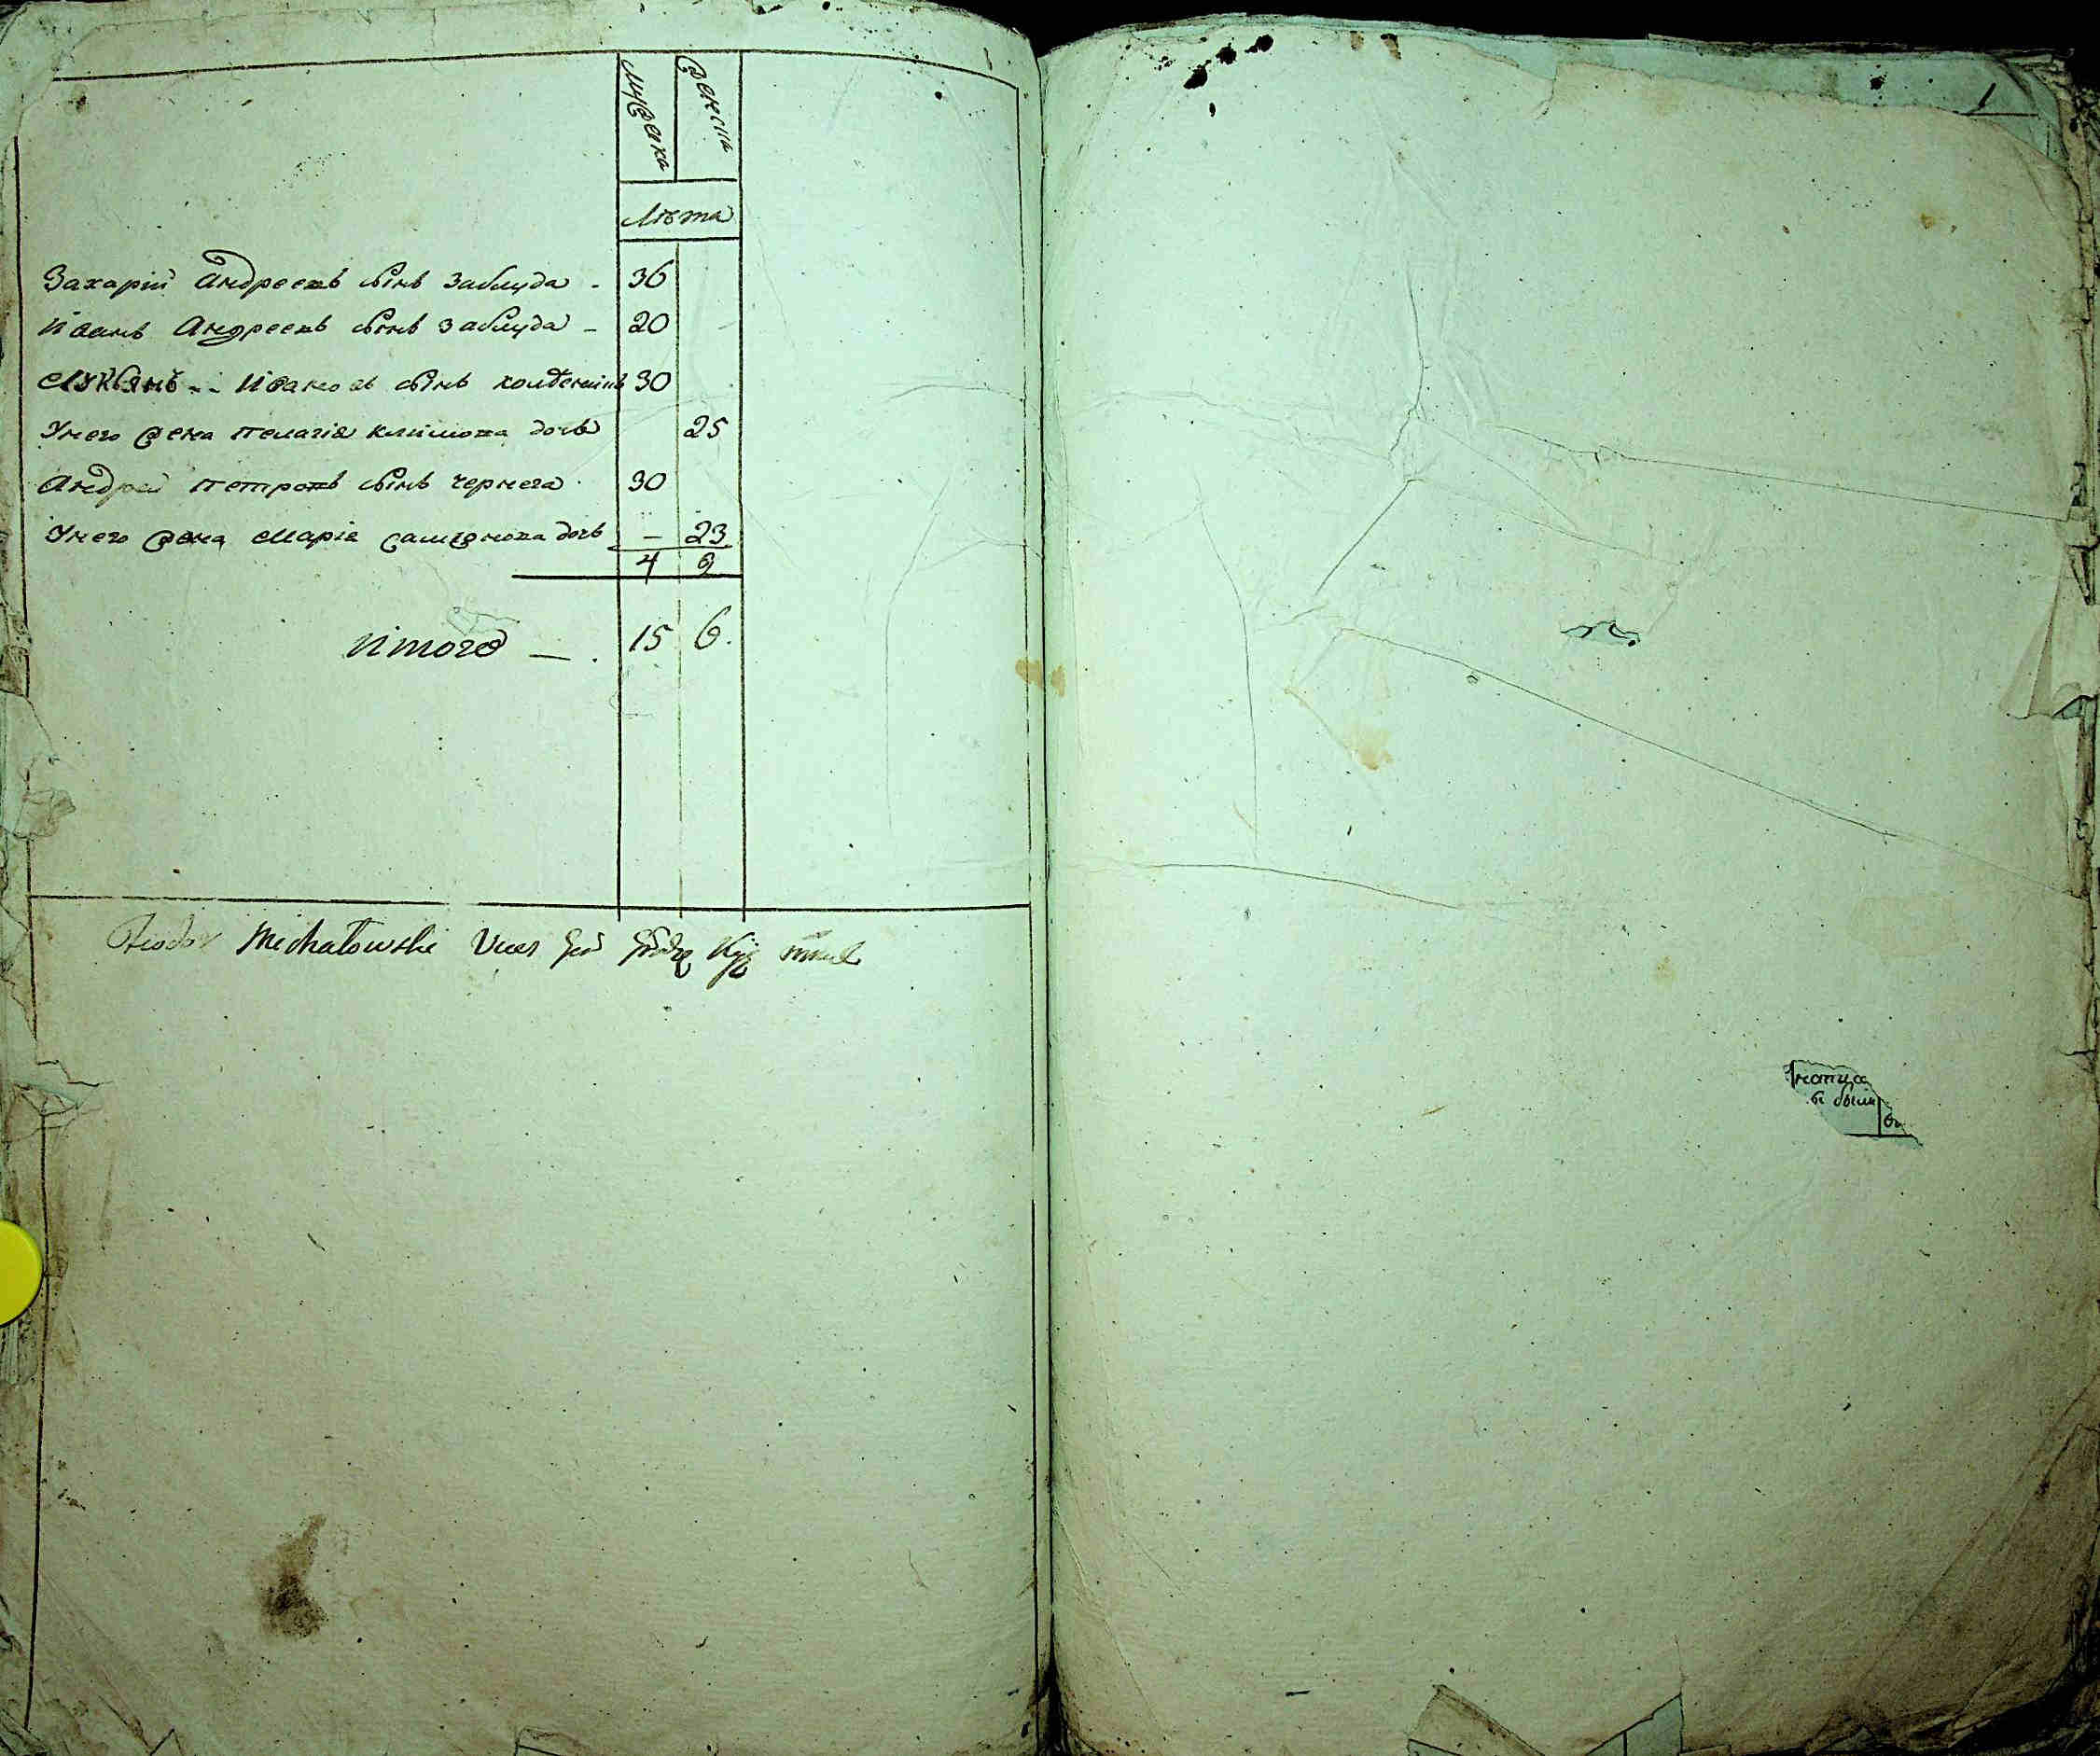 мужеска женска
лѣта
Захарій Андреевъ сынъ Заблуда - 36
Иванъ Андреевъ сынъ Заблуда - 20
Лукьянъ -- Ивановъ сынъ 30
У него жена Пелагія Климова дочь 25
Андрей Петровъ сынъ Чернега 30
У него жена Марія дочь — 23
4 2
Итого — . 15 6.
Michałowski
1
были